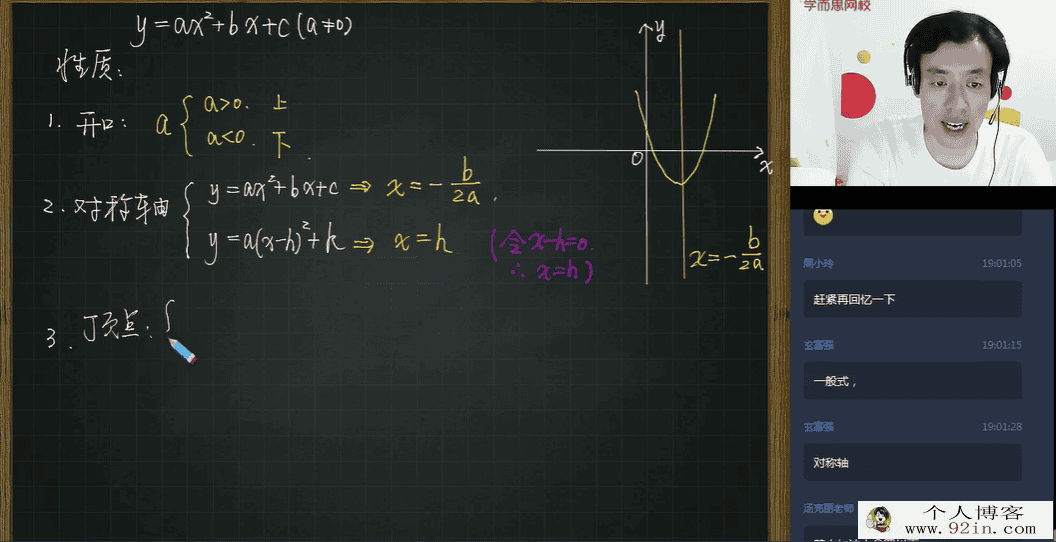 y=ax²+bx+c(a≠0)
性质:
1. 开口: a
a>0. 上
a<0. 下.
2. 对称轴
y=ax²+bx+c ⇒ x=-b/2a.
y=a(x-h)²+k ⇒ x=h
(令x-h=0.
∴ x=h)
3. 顶点:
y
O
x
x=-b/2a
学而思网校
周小玲 19:01:05
赶紧再回忆一下
玄富强 19:01:15
一般式，
玄富强 19:01:28
对称轴
汤亮朋老师
个人博客
www.92in.com